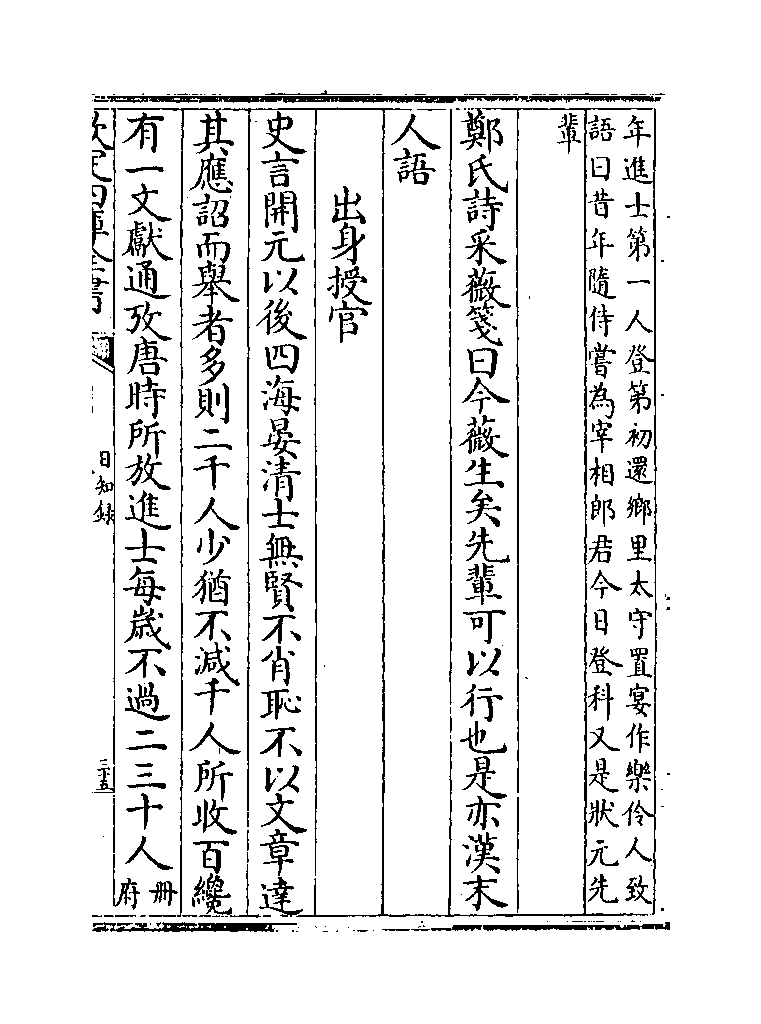 年進士第一人登第初還鄉里太守置宴作樂伶人致
語曰昔年隨侍嘗為宰相郎君今日登科又是狀元先
輩
鄭氏詩采薇箋曰今薇生矣先輩可以行也是亦漢末
人語
出身授官
史言開元以後四海晏清士無賢不肖恥不以文章達
其應詔而舉者多則二千人少猶不減千人所收百纔
有一文獻通攷唐時所放進士每歲不過二三十人冊
府
欽定四庫全書
日知錄
三十五